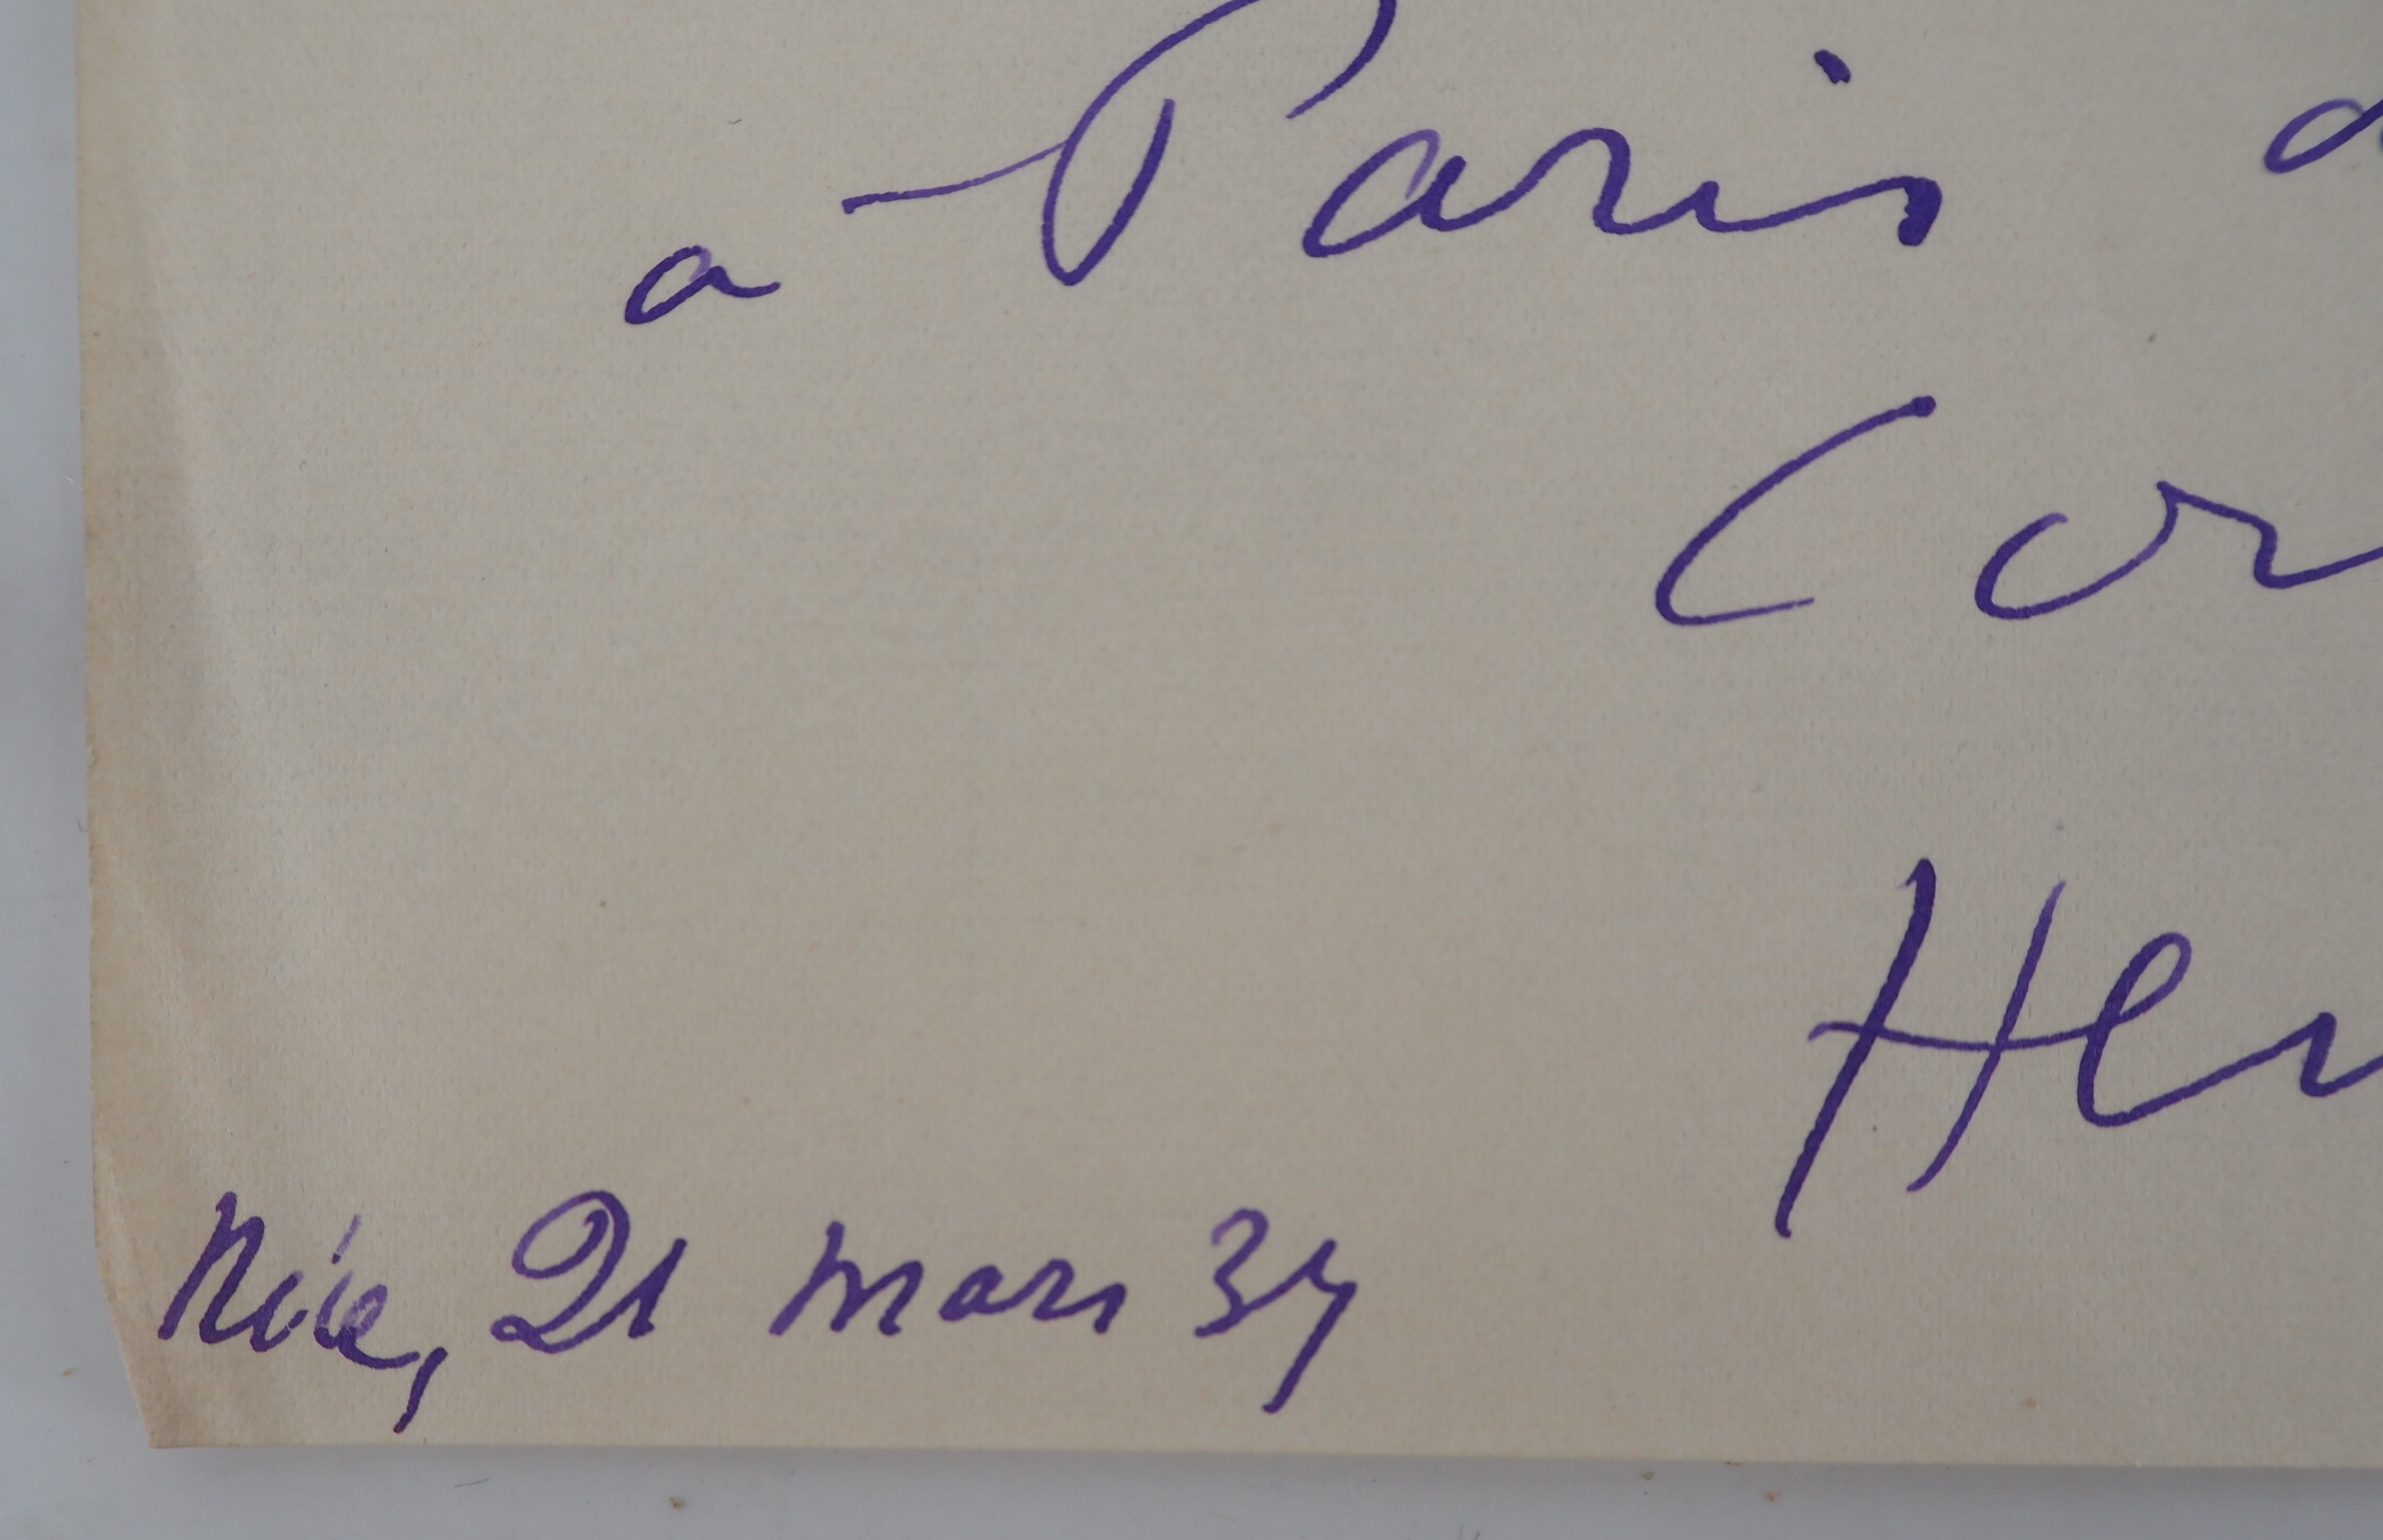 a Paris
Cor
Hen
Nice, 21 mars 37